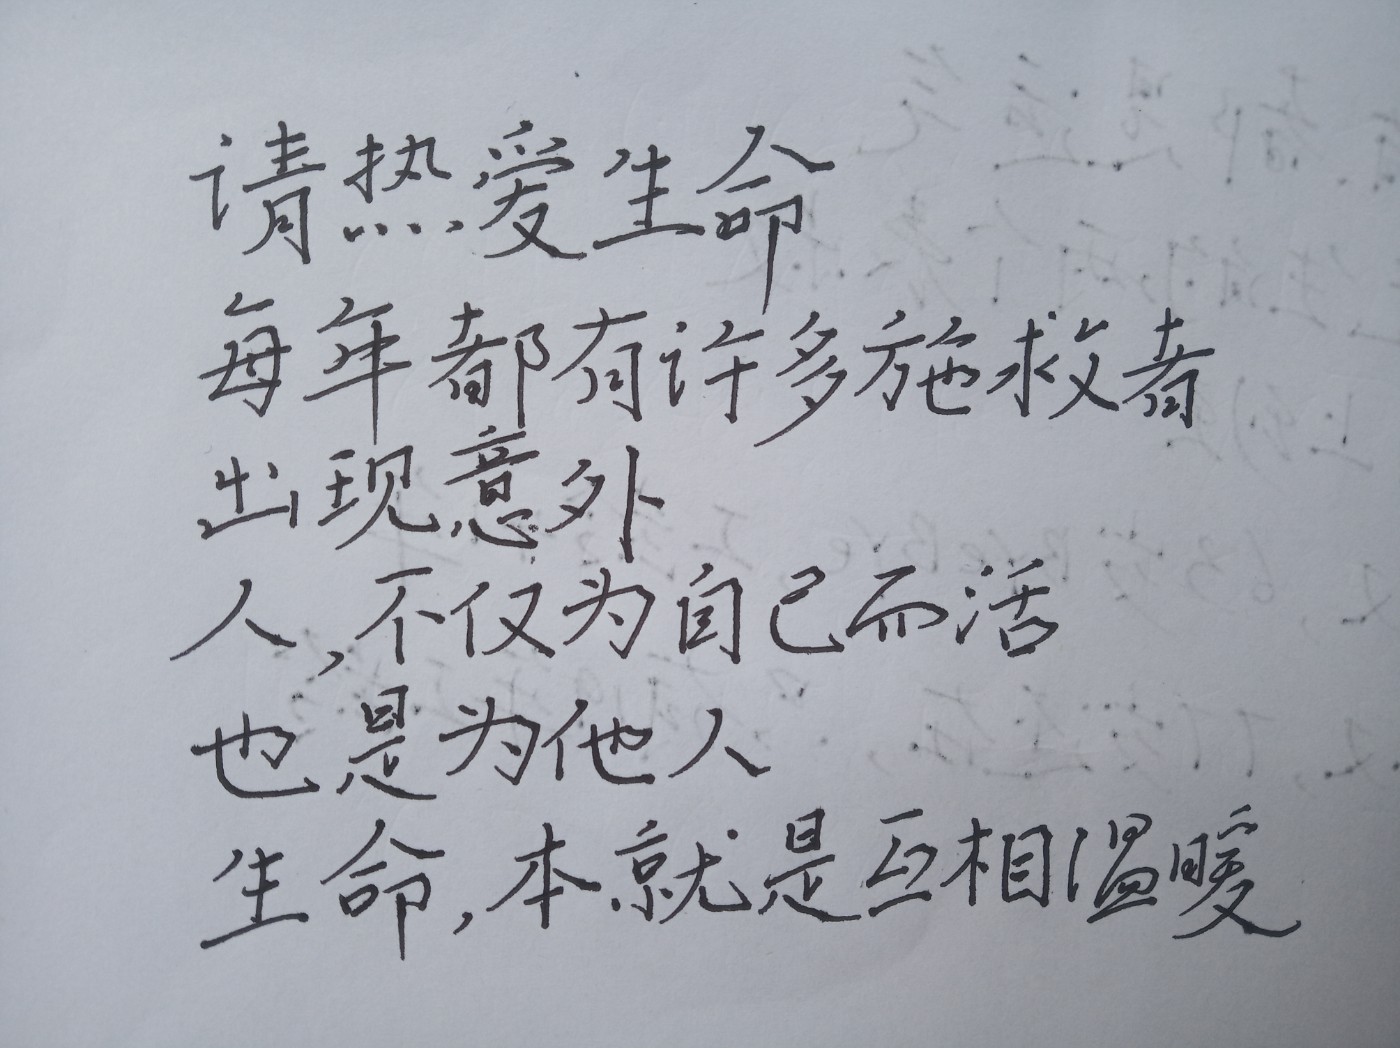 请热爱生命
每年都有许多施救者
出现意外
人,不仅为自己而活
也是为他人
生命,本就是互相温暖